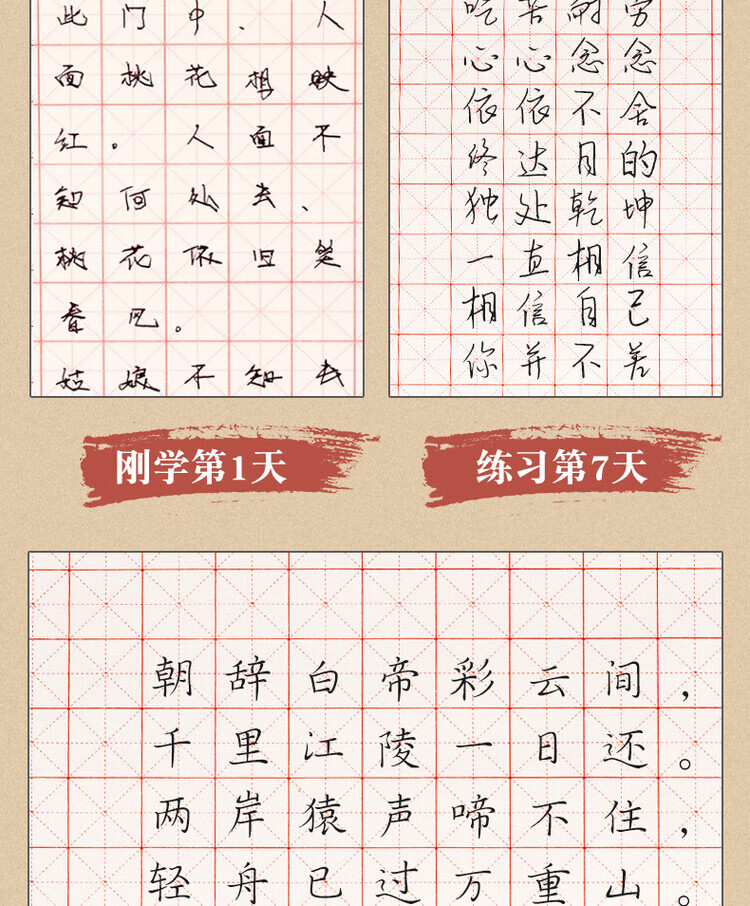 此门中、人
面桃花相映
红。人面不
知何处去、
桃花依旧笑
春风。
姑娘不知去
吃苦耐劳
心心念念
依依不舍
终达目的
独处乾坤
一直相信
相信自己
你并不差
刚学第1天
练习第7天
朝辞白帝彩云间，
千里江陵一日还。
两岸猿声啼不住，
轻舟已过万重山。